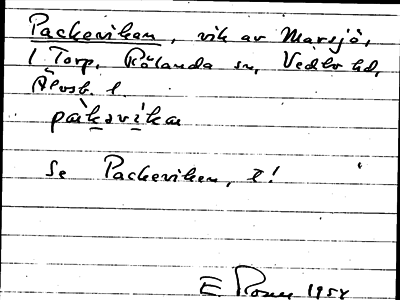 Packeviken, vik av Marsjö,
1 Torp, Rölanda sn, Vedbo hd,
Älvsb. l.
pàkəvìka
Se Packeviken, t!
E 1954